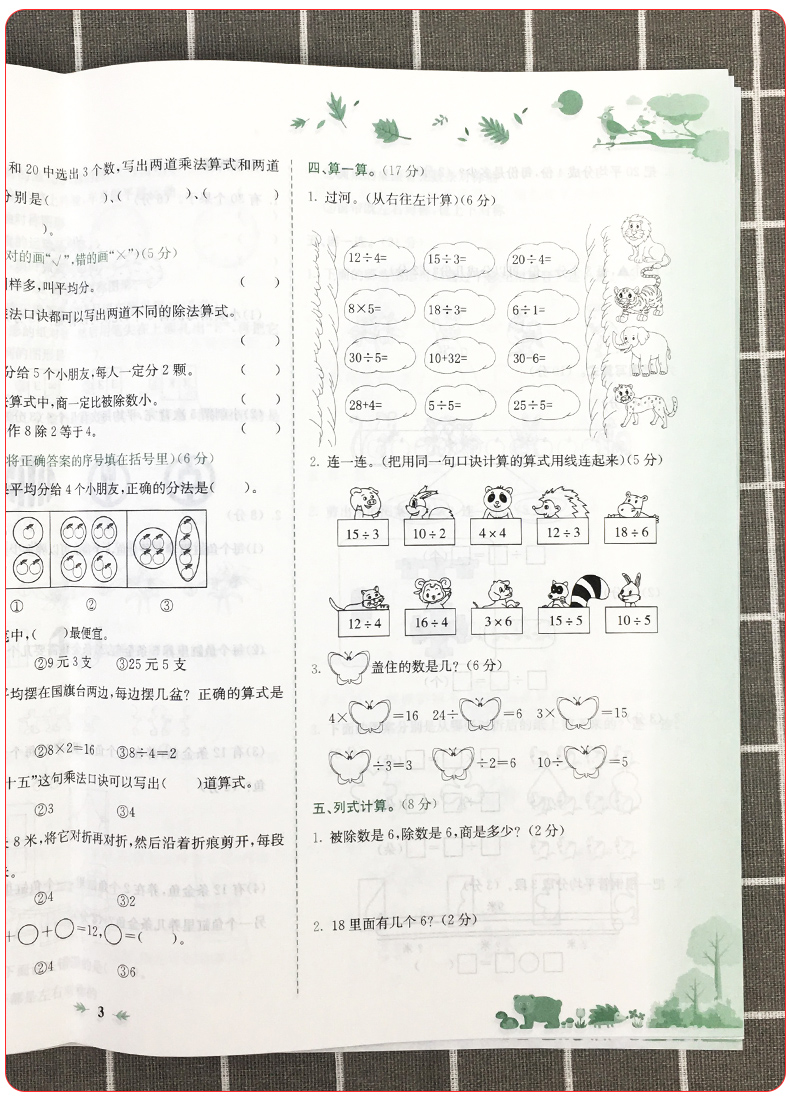 和20中选出3个数,写出两道乘法算式和两道
别是( )、( )、( )
)。
对的画“√”,错的画“×”)(5分)
样多,叫平均分。 ( )
法口诀都可以写出两道不同的除法算式。
( )
分给5个小朋友,每人一定分2颗。 ( )
算式中,商一定比被除数小。 ( )
作8除2等于4。 ( )
将正确答案的序号填在括号里)(6分)
平均分给4个小朋友,正确的分法是( )。
① ② ③
中,( )最便宜。
②9元3支 ③25元5支
均摆在国旗台两边,每边摆几盆?正确的算式是
②8×2=16 ③8÷4=2
十五”这句乘法口诀可以写出( )道算式。
②3 ③4
8米,将它对折再对折,然后沿着折痕剪开,每段
。
②4 ③2
+○+○=12,○=( )。
②4 ③6
3
四、算一算。(17分)
1. 过河。(从右往左计算)(6分)
12÷4= 15÷3= 20÷4=
8×5= 18÷3= 6÷1=
30÷5= 10+32= 30-6=
28+4= 5÷5= 25÷5=
2. 连一连。(把用同一句口诀计算的算式用线连起来)(5分)
15÷3 10÷2 4×4 12÷3 18÷6
12÷4 16÷4 3×6 15÷5 10÷5
3. 盖住的数是几?(6分)
4× =16 24÷ =6 3× =15
÷3=3 ÷2=6 10÷ =5
五、列式计算。(8分)
1. 被除数是6,除数是6,商是多少?(2分)
2. 18里面有几个6?(2分)